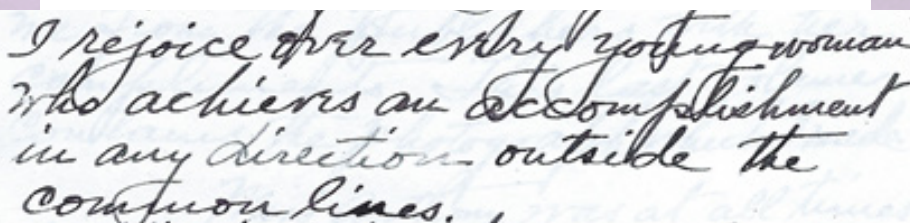 I rejoice over every young woman
who achieves an accomplishment
in any direction outside the
common lines.